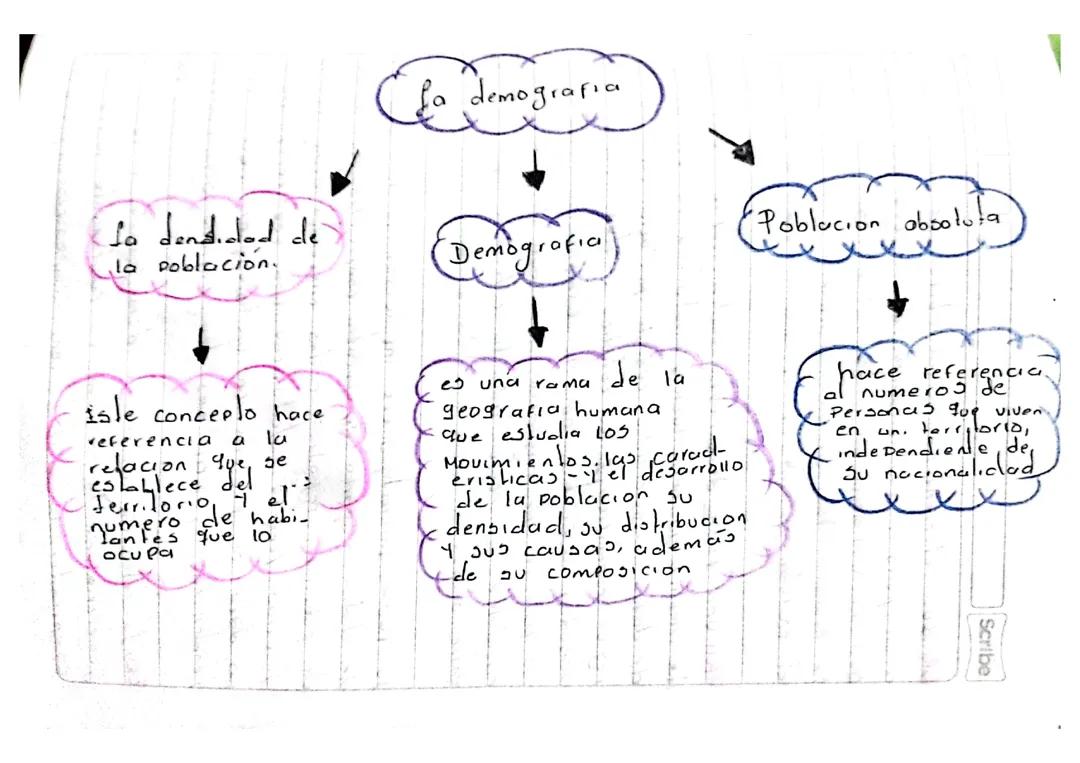 La demografia
La densidad de
la población.
Demografia
Poblacion absoluta
iste concepto hace
referencia a la
relacion que se
establece del
territorio y el
numero de habi-
tantes que lo
ocupa
es una rama de la
geografia humana
que estudia los
Movimientos, las caract-
eristicas - y el desarrollo
de la Poblacion su
densidad, su distribucion
y sus causas, además
de su composicion
hace referencia
al numeros de
Personas que viven
en un. territorio,
independiente de
su nacionalidad
Scribe